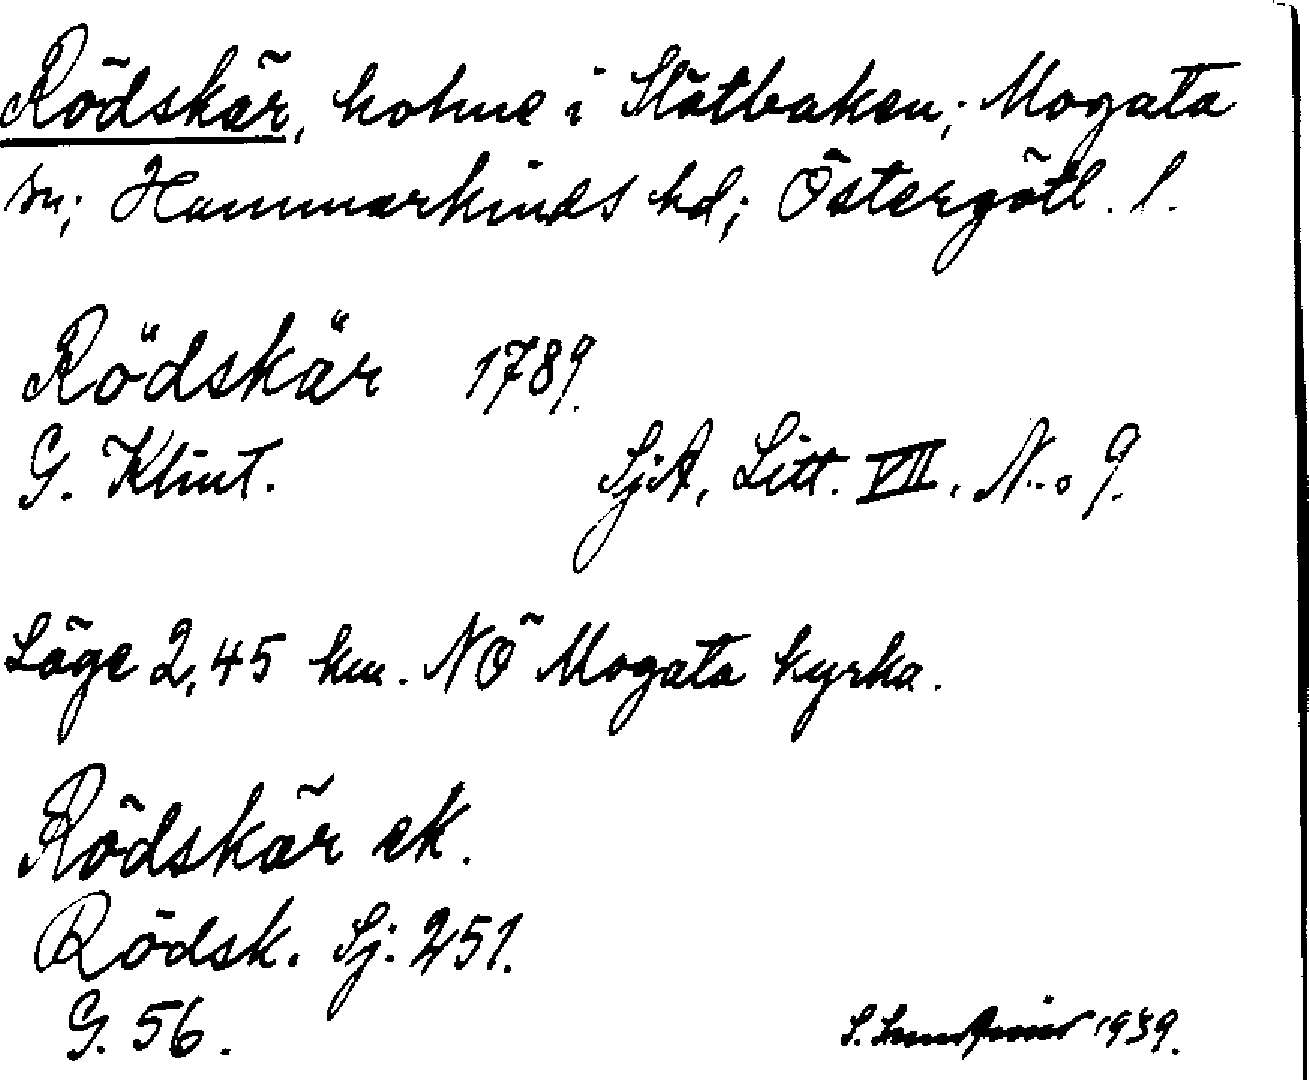 Rödskär, holme i Slätbaken; Mogata
sn; Hammarkinds hd; Östergötl. l.
Rödskär 1789.
G. Klint. SjA, Litt. VII. N..o 9.
Läge 2,45 km. NÖ Mogata kyrka.
Rödskär ek.
Rödsk. Sj: 251.
G. 56.
S. 1939.